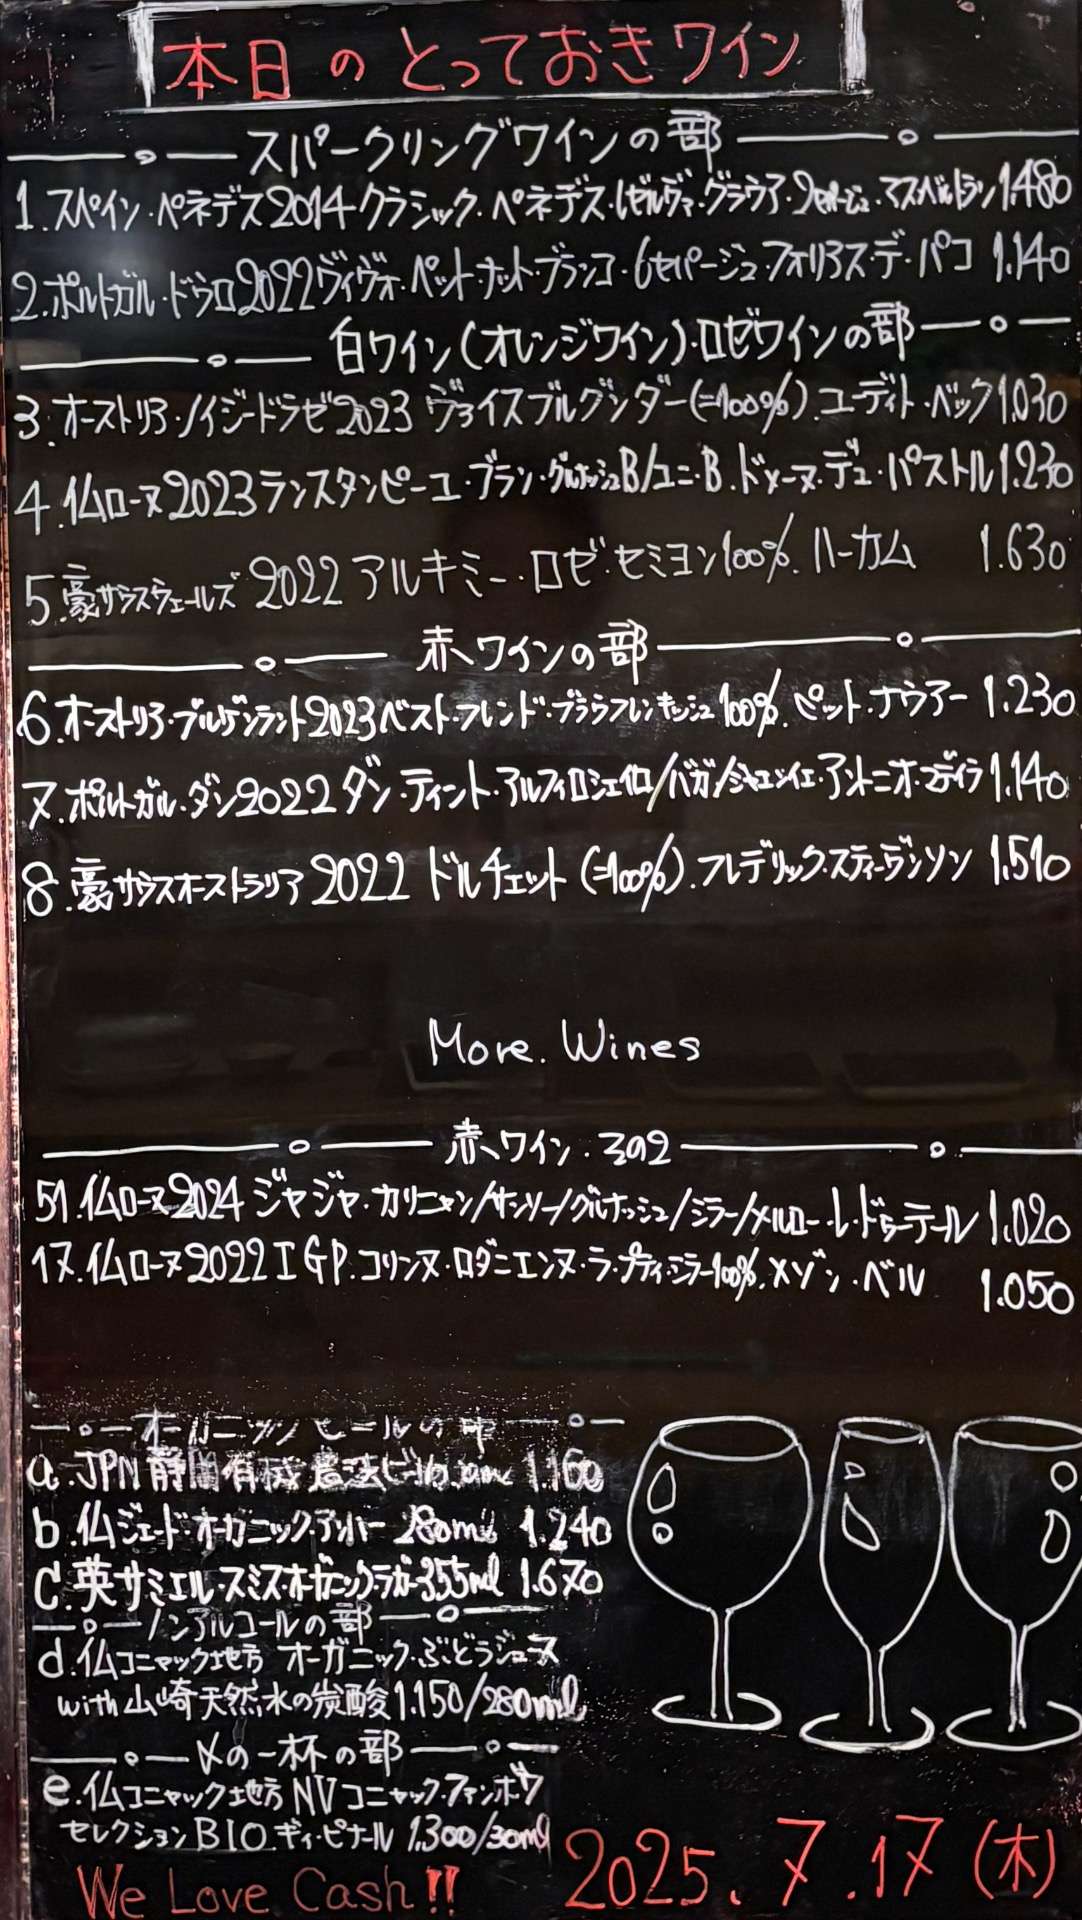 本日のとっておきワイン
スパークリングワインの部
1.スペイン・ペネデス2014クラシック・ペネデス・レゼルヴァ・グラウア・2セパージュ・マスベルトラン1.480
2.ポルトガル・ドウロ2022ヴィヴォ・ペット・ナット・ブランコ・6セパージュ・フォリアス・デ・バコ 1.140
白ワイン(オレンジワイン)・ロゼワインの部
3.オーストリア・ノイジードラゼ2023 ヴァイスブルグンダー(=100%).ユーディト・ベック1.030
4.仏ローヌ2023ランスタンピーユ・ブラン・グルナッシュB/ユニ・B.ドメーヌ・デュ・パストル1.230
5.豪サウスウェールズ 2022 アルキミー・ロゼ・セミヨン100%.ハーカム 1.630
赤ワインの部
6.オーストリア・ブルゲンラント2023ベスト・フレンド・ブラウフレンキッシュ100%.ピット・ナウアー 1.230
7.ポルトガル・ダン2022 ダン・ティント・アルフィロシェイロ/バガ/ジャエン/イェ・アントニオ・マデイラ1.140
8.豪サウスオーストラリア 2022 ドルチェット(=100%).フレデリック・スティーヴンソン 1.510
More. Wines
赤ワイン.その2
51.仏ローヌ2024 ジャジャ・カリニャン/サンソー/グルナッシュ/シラー/メルロー・レ・ドゥーテール1.020
17.仏ローヌ2022 IGP.コリンヌ・ロダニエンヌ・ラ・プティ・シラー100%.メゾン・ベル 1.050
オーガニックビールの部
a.JPN静岡有機農法ビール 1.160
b.仏ジェード・オーガニック・アンバー 280ml 1.240
c.英サミエル・スミスオーガニック・ラガー355ml 1.670
ノンアルコールの部
d.仏コニャック地方 オーガニック・ぶどうジュース
with山崎天然水の炭酸1.150/280ml
〆の一杯の部
e.仏コニャック地方NVコニャック・ファンボワ
セレクションBIO ギィ・ピナール 1.300/30ml
We Love Cash!!
2025.7.17(木)